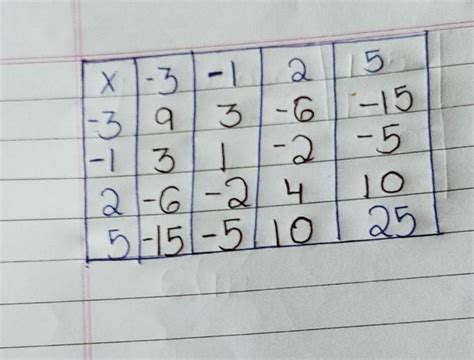 x -3 -1 2 5
-3 9 3 -6 -15
-1 3 1 -2 -5
2 -6 -2 4 10
5 -15 -5 10 25